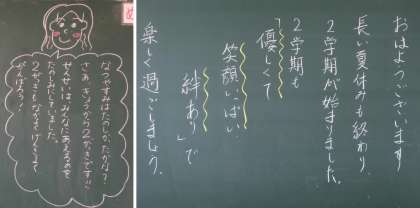 おはようございます
長い夏休みも終わり、
2学期が始まりました。
2学期も
「優しくて
笑顔いっぱい
絆あり」で
楽しく過ごしましょう。
なつやすみはたのしかったかな?
さあ、キョウから2がっきです!!
せんせいは、みんなにあえるのを
たのしみにしていました。
2がっきもなかよくげんきよく
がんばろう!